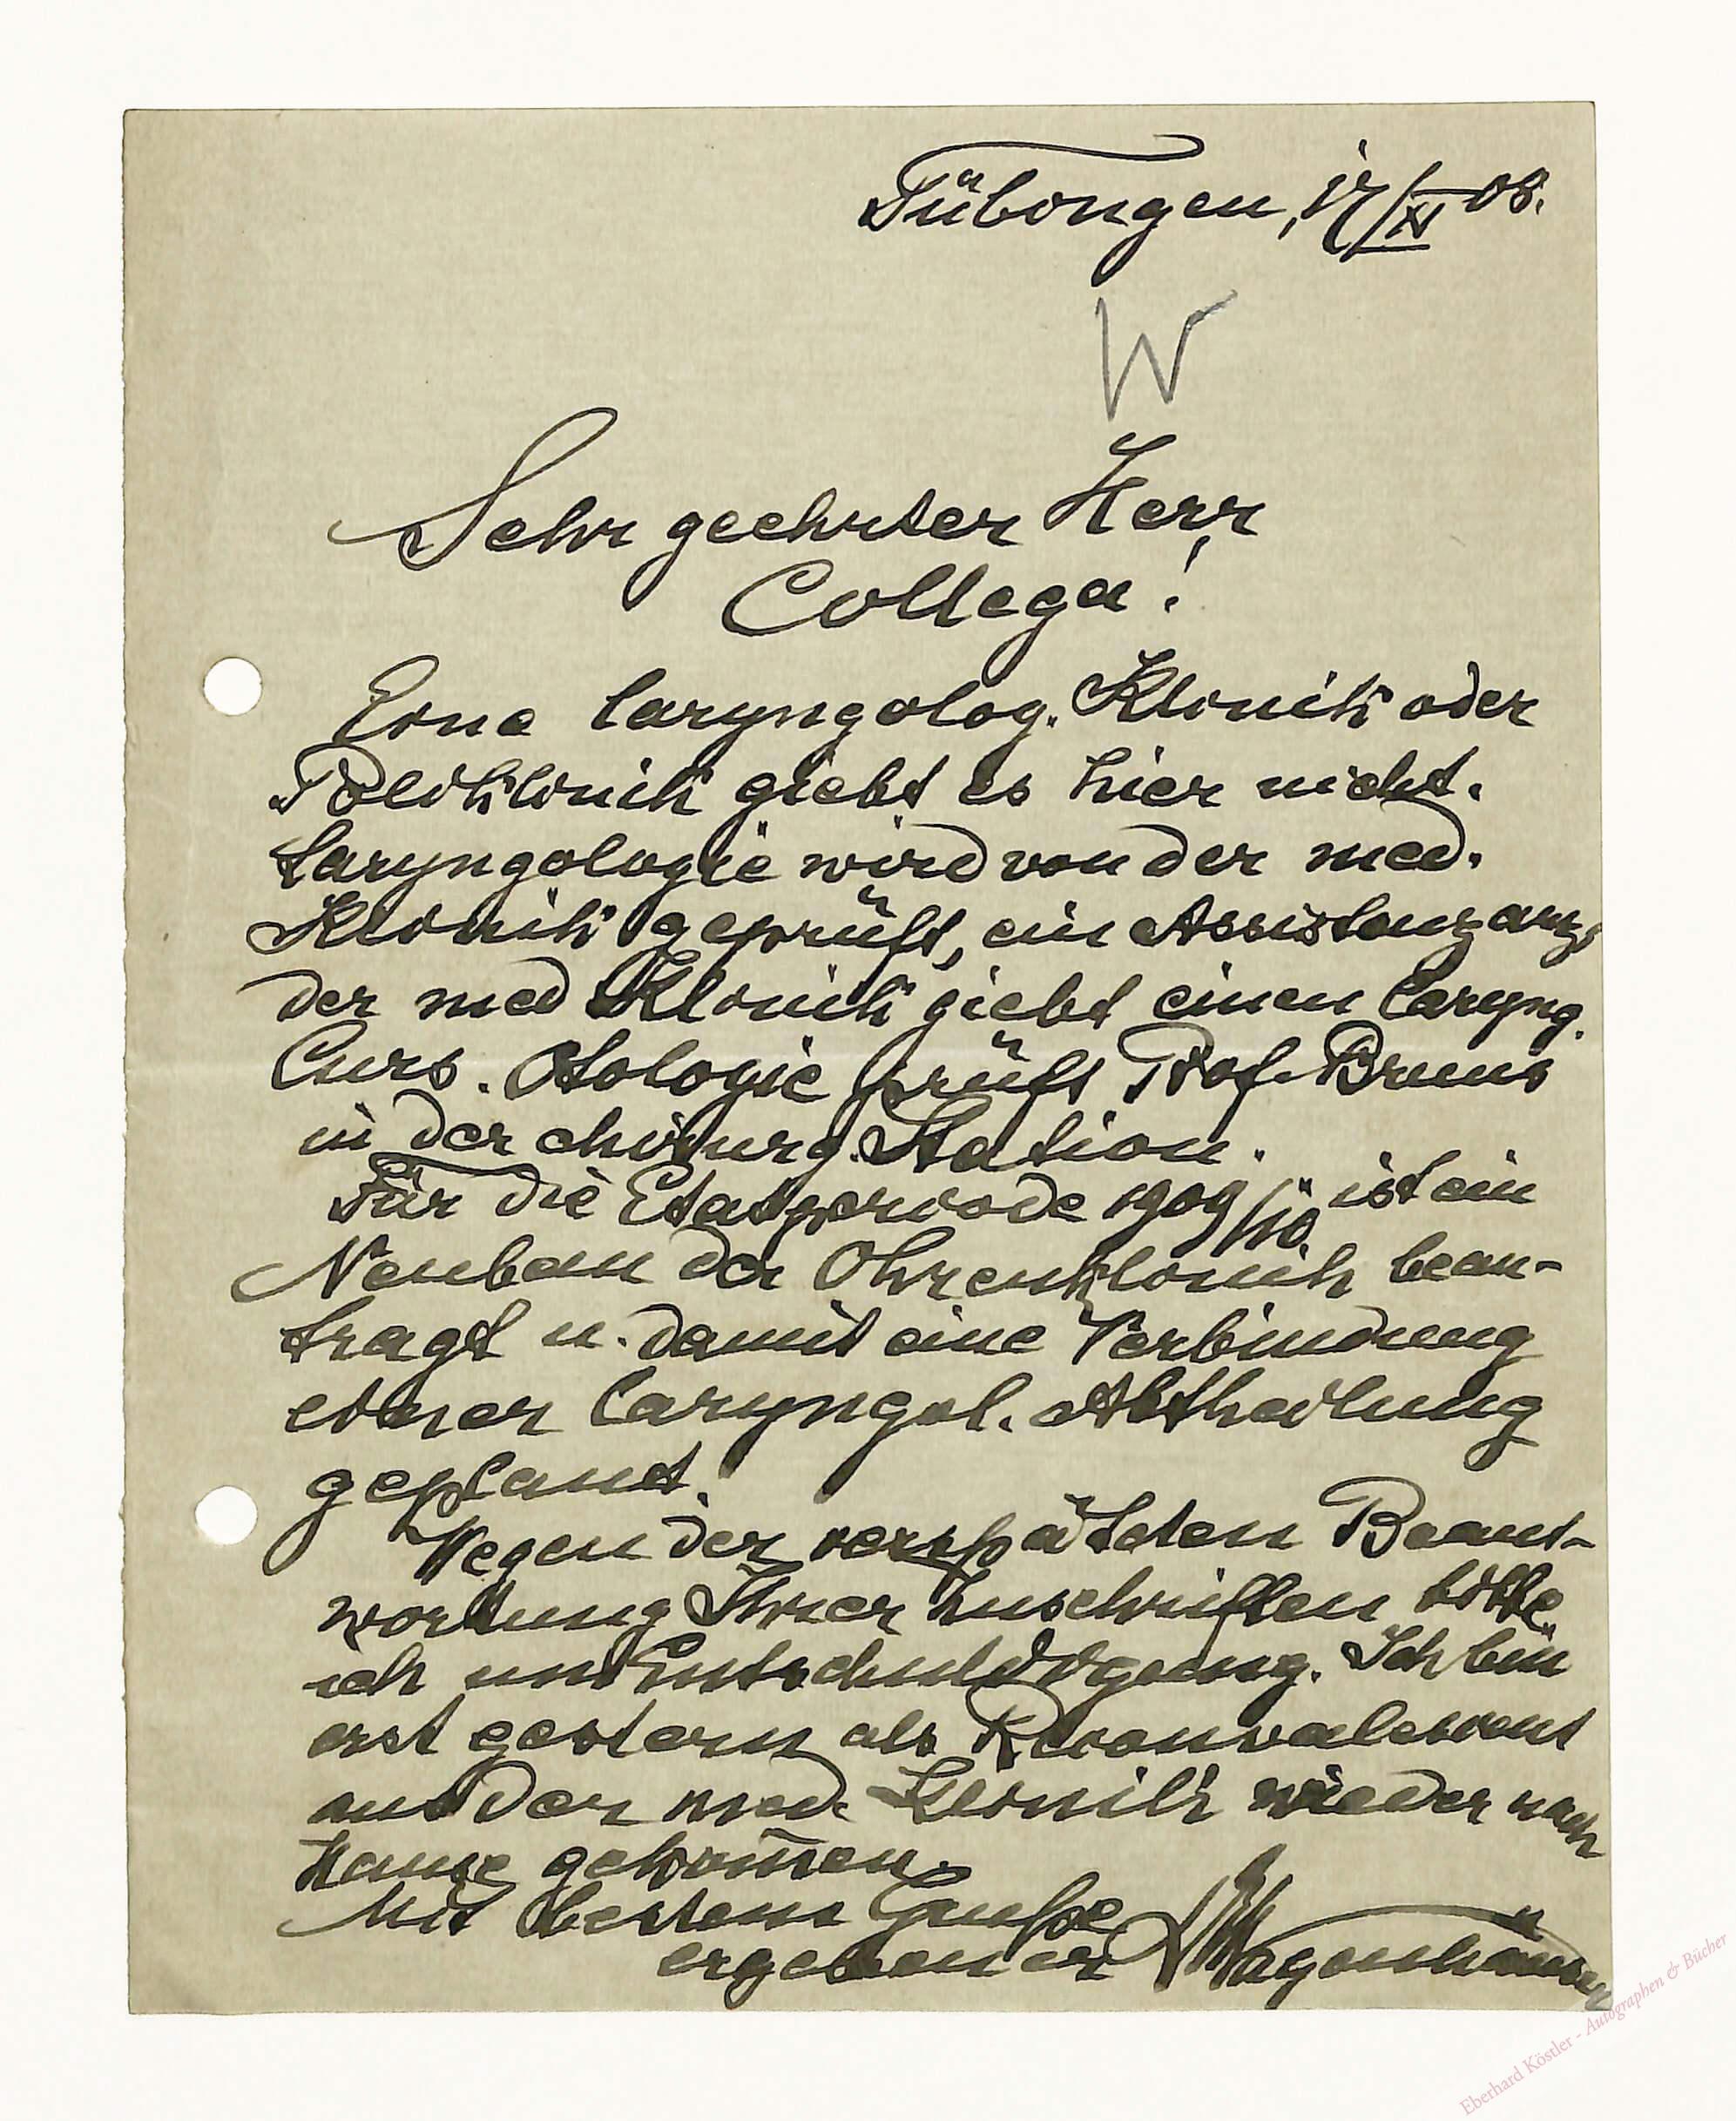 Tübingen, 17/XI 08.
W
Sehr geehrter Herr
Collega!
Eine laryngolog. Klinik oder
Poliklinik giebt es hier nicht.
Laryngologie wird von der med.
Klinik geprüft, ein Assistenzarzt
der med Klinik giebt einen laryng.
Curs. Otologie prüft Prof. Bruns
in der chirurg. Station.
Für die Etatsperiode 1909/10 ist ein
Neubau der Ohrenklinik bean-
tragt u. damit eine Verbindung
einer laryngol. Abtheilung
geplant.
Wegen der verspäteten Beant-
wortung Ihrer Zuschriften bitte
ich um Entschuldigung. Ich bin
erst gestern als Reconvalescent
aus der med. Klinik wieder nach
Hause gekom̅en.
Mit bestem Gruße
ergebener Wagenhäuser
Eberhard Köstler - Autographen & Bücher